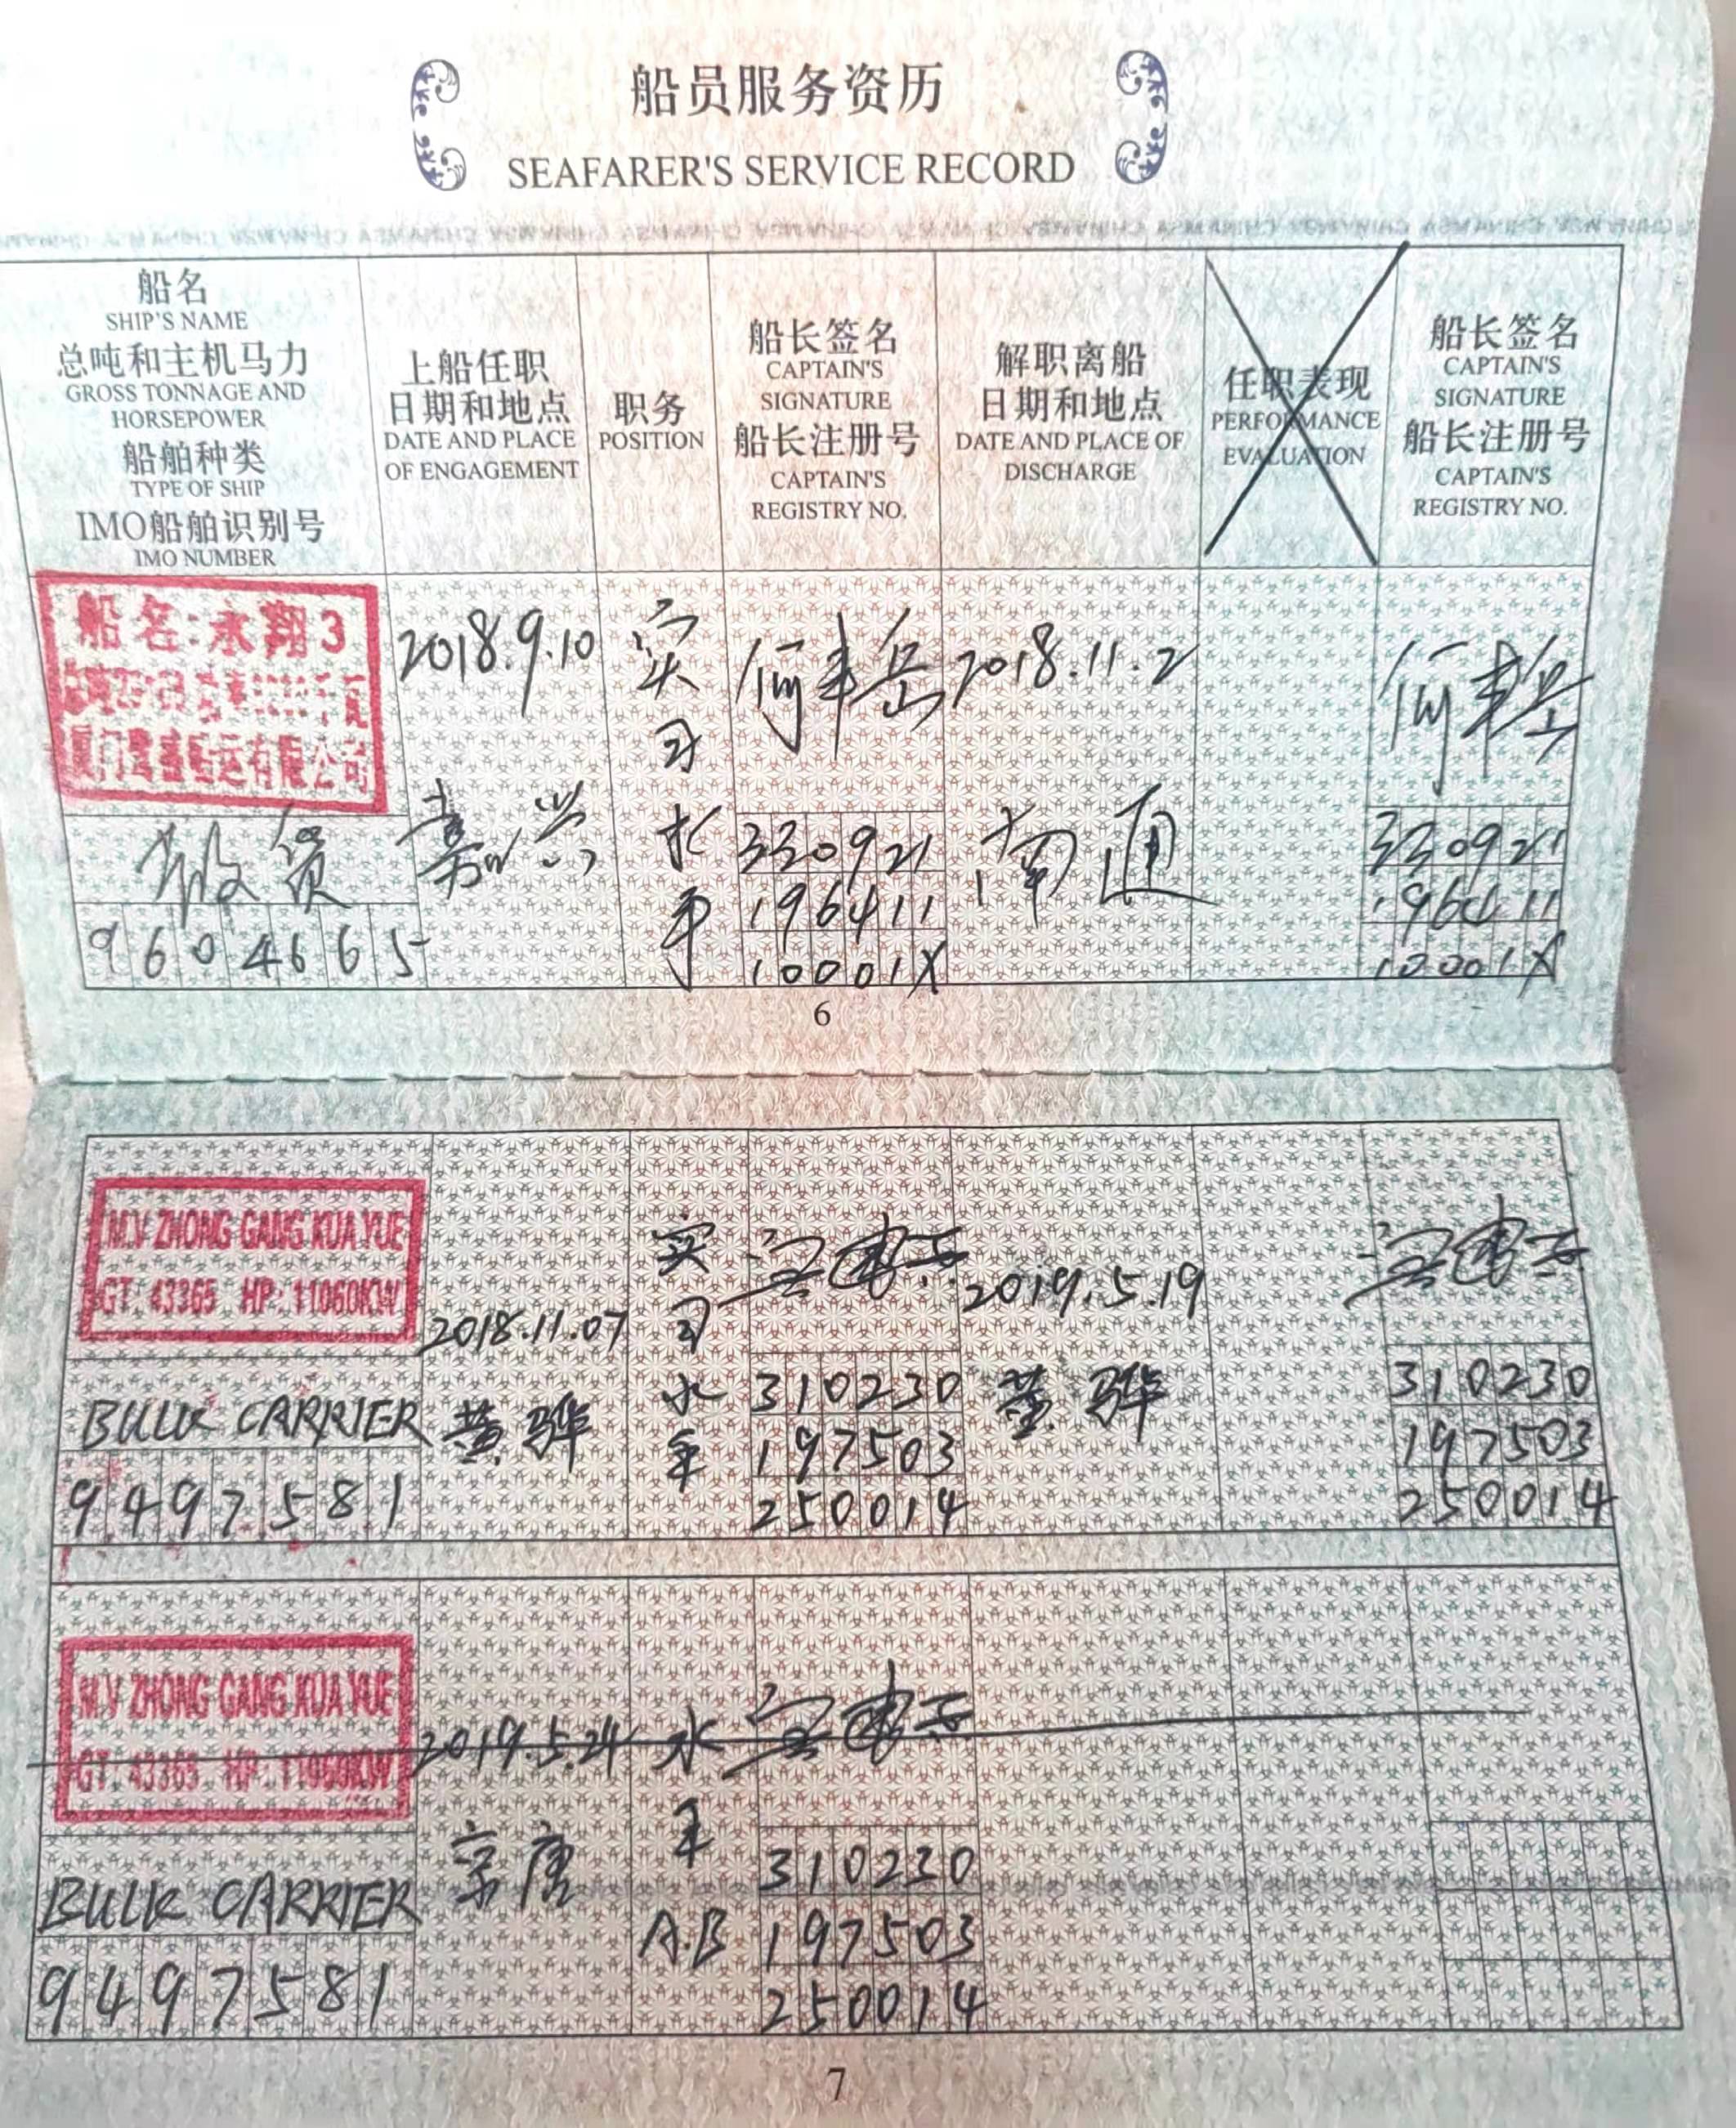 船员服务资历
SEAFARER'S SERVICE RECORD
船名
SHIP'S NAME
总吨和主机马力
GROSS TONNAGE AND
HORSEPOWER
船舶种类
TYPE OF SHIP
IMO船舶识别号
IMO NUMBER
上船任职
日期和地点
DATE AND PLACE
OF ENGAGEMENT
职务
POSITION
船长签名
CAPTAIN'S
SIGNATURE
船长注册号
CAPTAIN'S
REGISTRY NO.
解职离船
日期和地点
DATE AND PLACE OF
DISCHARGE
任职表现
PERFORMANCE
EVALUATION
船长签名
CAPTAIN'S
SIGNATURE
船长注册号
CAPTAIN'S
REGISTRY NO.
船名:永翔3
散货
9604665
2018.9.10
嘉兴
实
习
水
手
330921
196411
10001X
2018.11.2
南通
330921
196411
10001X
6
M.V ZHONG GANG KUA YUE
GT: 43365 HP: 11060KW
BULK CARRIER
9497581
2018.11.07
黄骅
实
习
水
手
310230
197503
250014
2019.5.19
黄骅
310230
197503
250014
M.V ZHONG GANG KUA YUE
GT: 43365 HP: 11060KW
BULK CARRIER
9497581
2019.5.24
京唐
水
手
A.B
310230
197503
250014
7